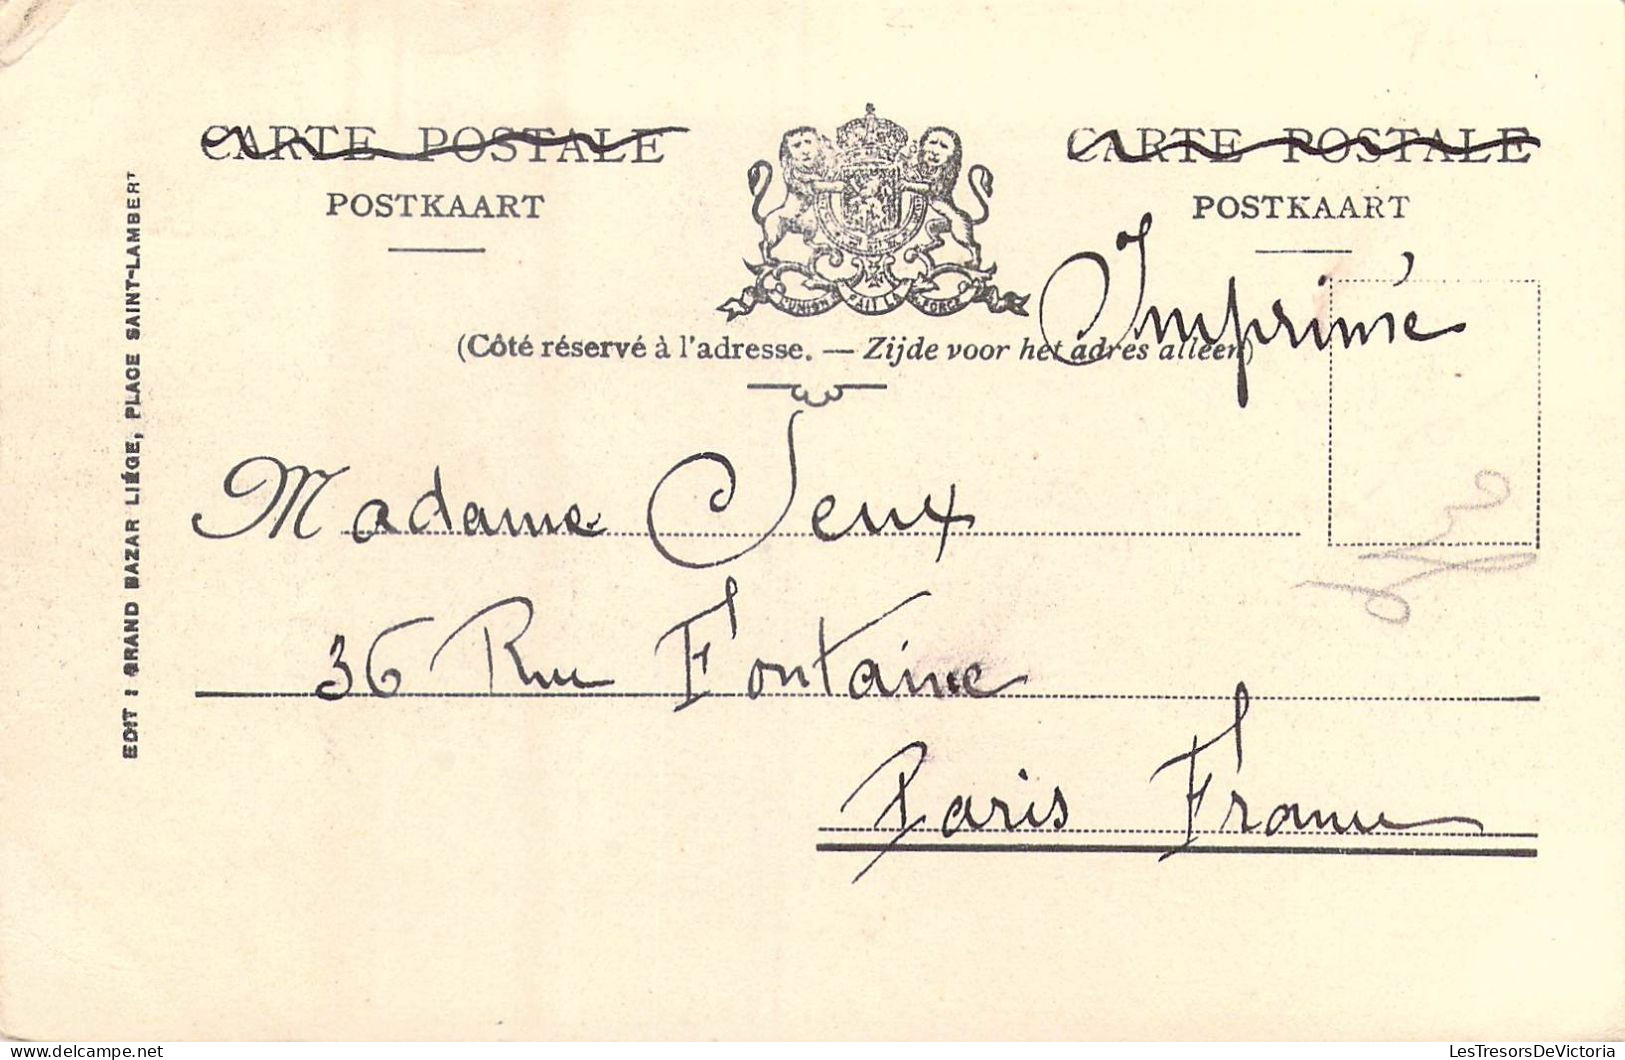 CARTE POSTALE CARTE POSTALE
POSTKAART POSTKAART
L'UNION FAIT LA FORCE
Imprimé
(Côté réservé à l'adresse. — Zijde voor het adres alleen)
Madame Seux
36 Rue Fontaine
Paris France
EDIT : GRAND BAZAR LIÉGE, PLACE SAINT-LAMBERT
delcampe.net
LesTresorsDeVictoria